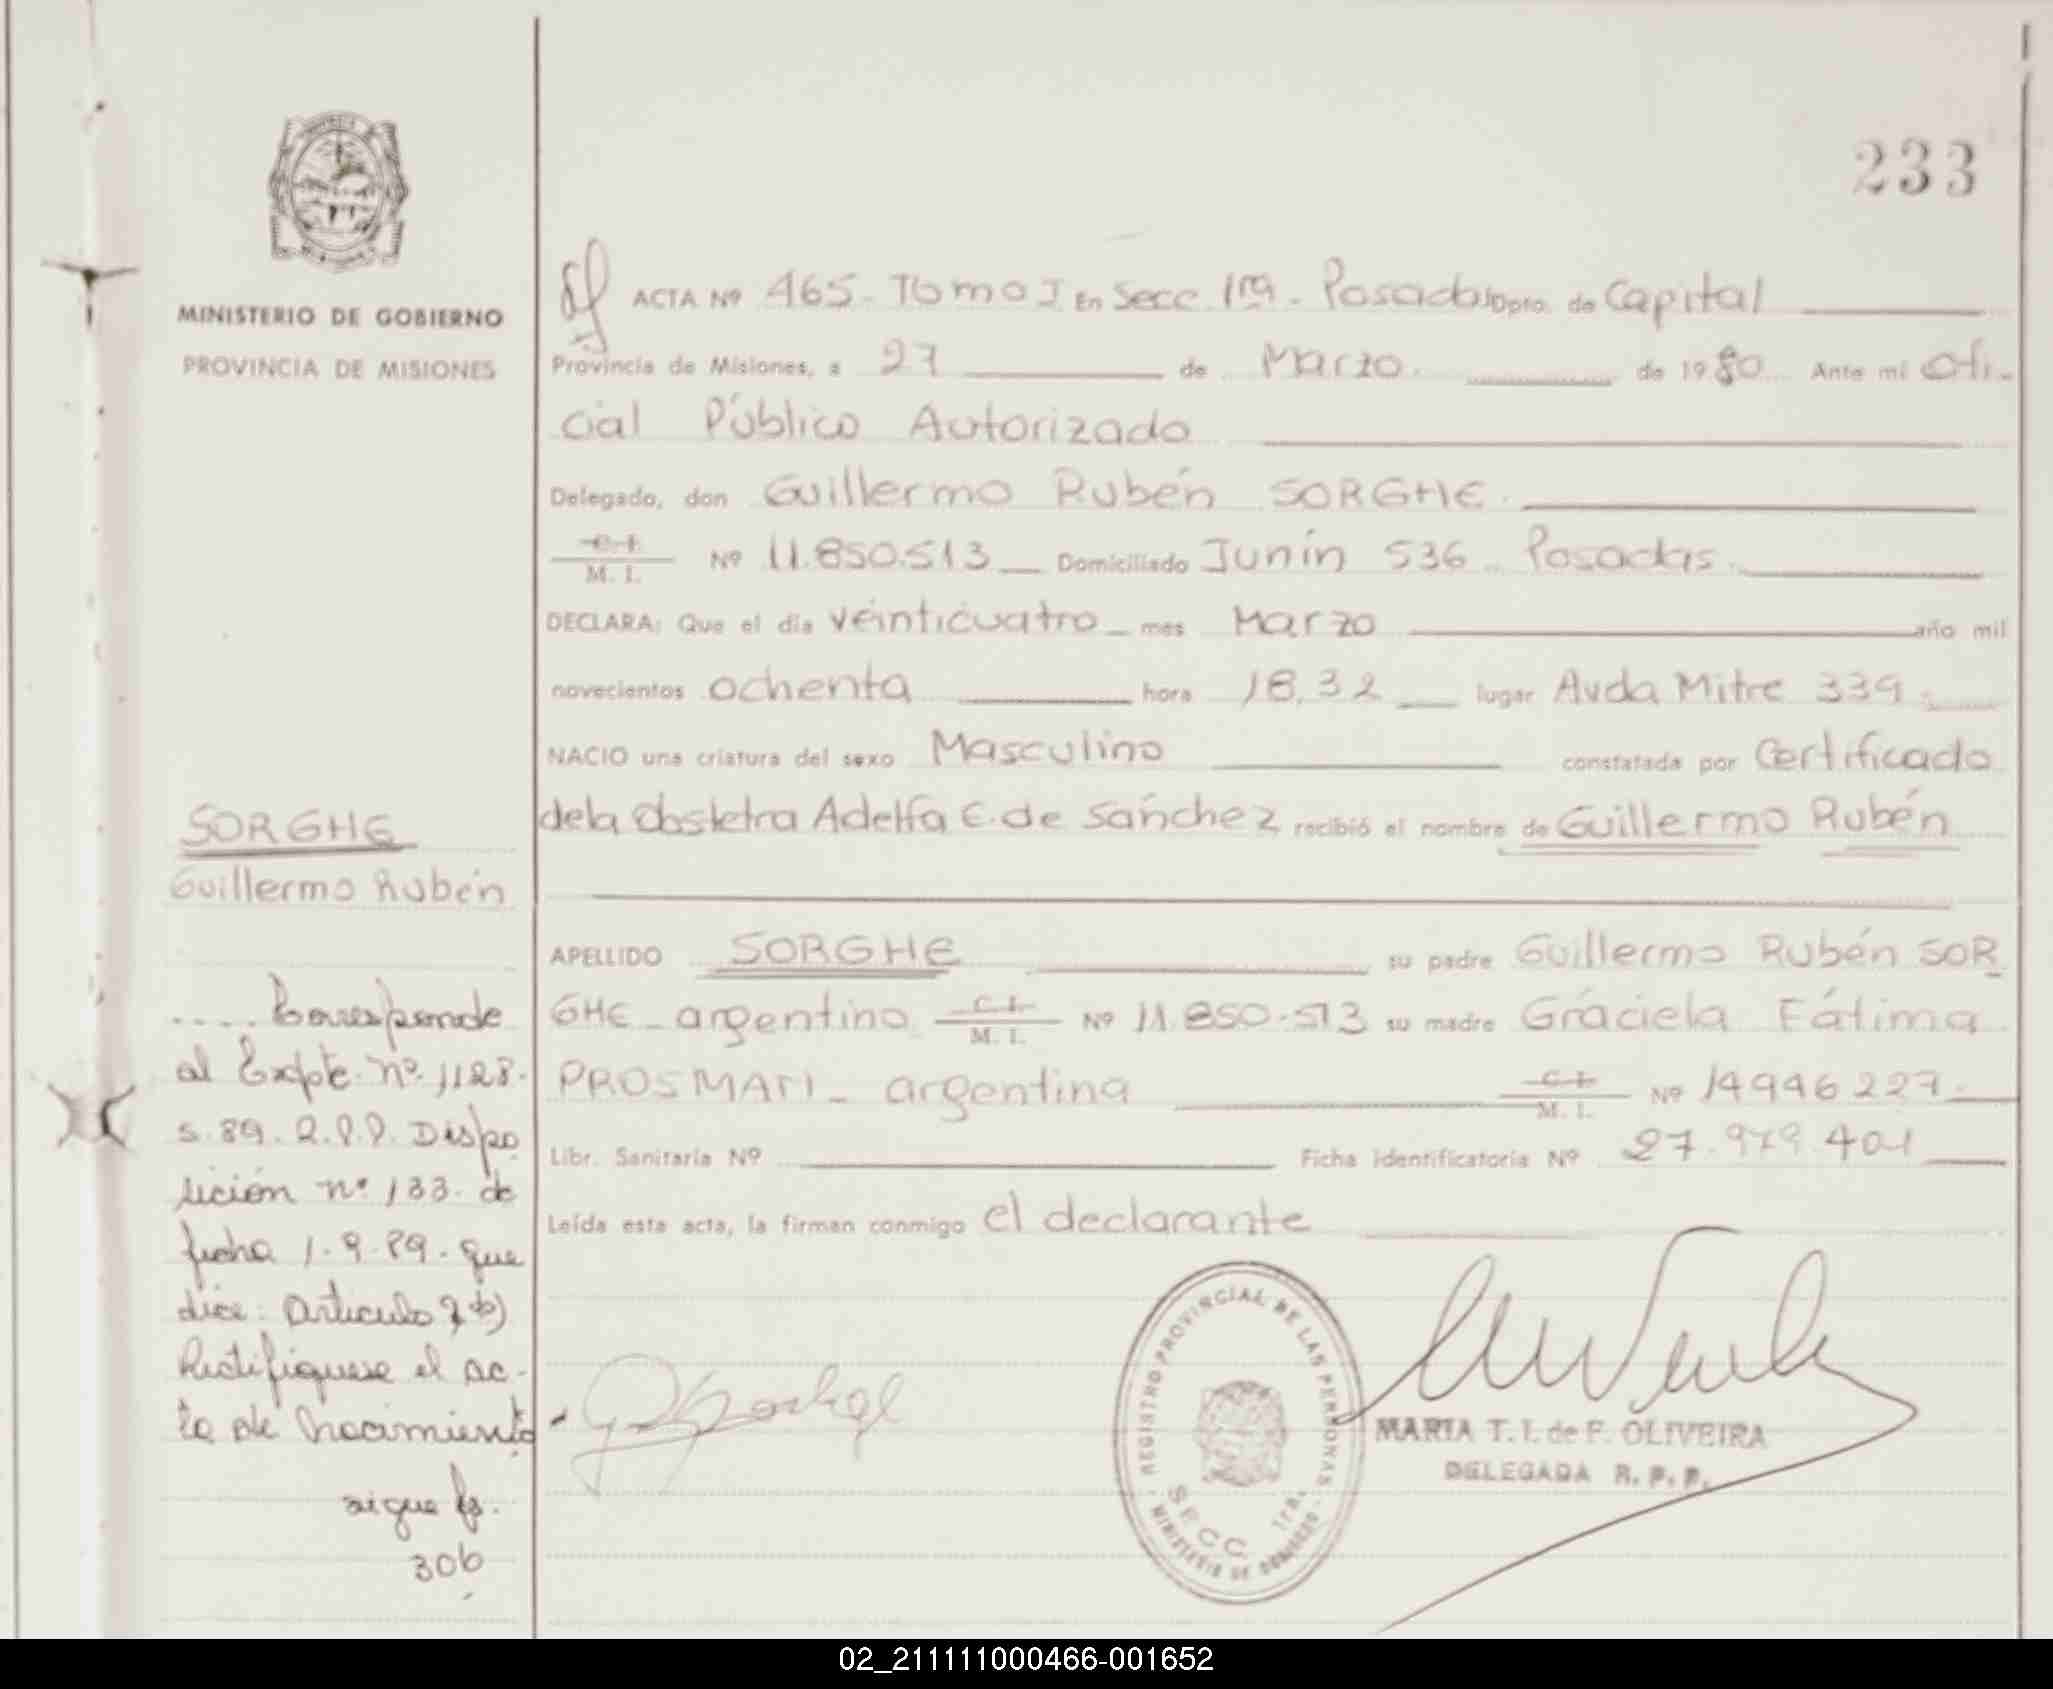 233
MINISTERIO DE GOBIERNO
PROVINCIA DE MISIONES
ACTA Nº 465 - Tomo I En Secc. 1ra - Posadas Dpto. de Capital
Provincia de Misiones, a 27 de Marzo. de 1980 Ante mi Ofi-
cial Público Autorizado
Delegado, don Guillermo Rubén SORGHE.
C. I. M. I. Nº 11.850.513 Domiciliado Junín 536 - Posadas.
DECLARA: Que el día veinticuatro mes Marzo año mil
novecientos ochenta hora 18,32 lugar Avda Mitre 339.
NACIO una criatura del sexo Masculino constatada por Certificado
de la Obstetra Adelfa E. de Sánchez recibió el nombre de Guillermo Rubén
APELLIDO SORGHE su padre Guillermo Rubén SOR
GHE - argentino C. I. M. I. Nº 11.850.513 su madre Graciela Fátima
PROSMATI - argentina C. I. M. I. Nº 14946227.
Libr. Sanitaria Nº Ficha Identificatoria Nº 27.979.401
Leída esta acta, la firman conmigo el declarante
SORGHE
Guillermo Rubén
.... Corresponde
al Expte. nº. 1128.
s. 89. R.P.P. Dispo
sición nº 133. de
fecha 1.9.89. que
dice: Artículo
Rectifíquese el ac-
ta de nacimiento
sigue fs.
306
REGISTRO PROVINCIAL DE LAS PERSONAS
SECC. 1ra.
MINISTERIO DE GOBIERNO
MARIA T. I. de F. OLIVEIRA
DELEGADA R. P. P.
02_211111000466-001652